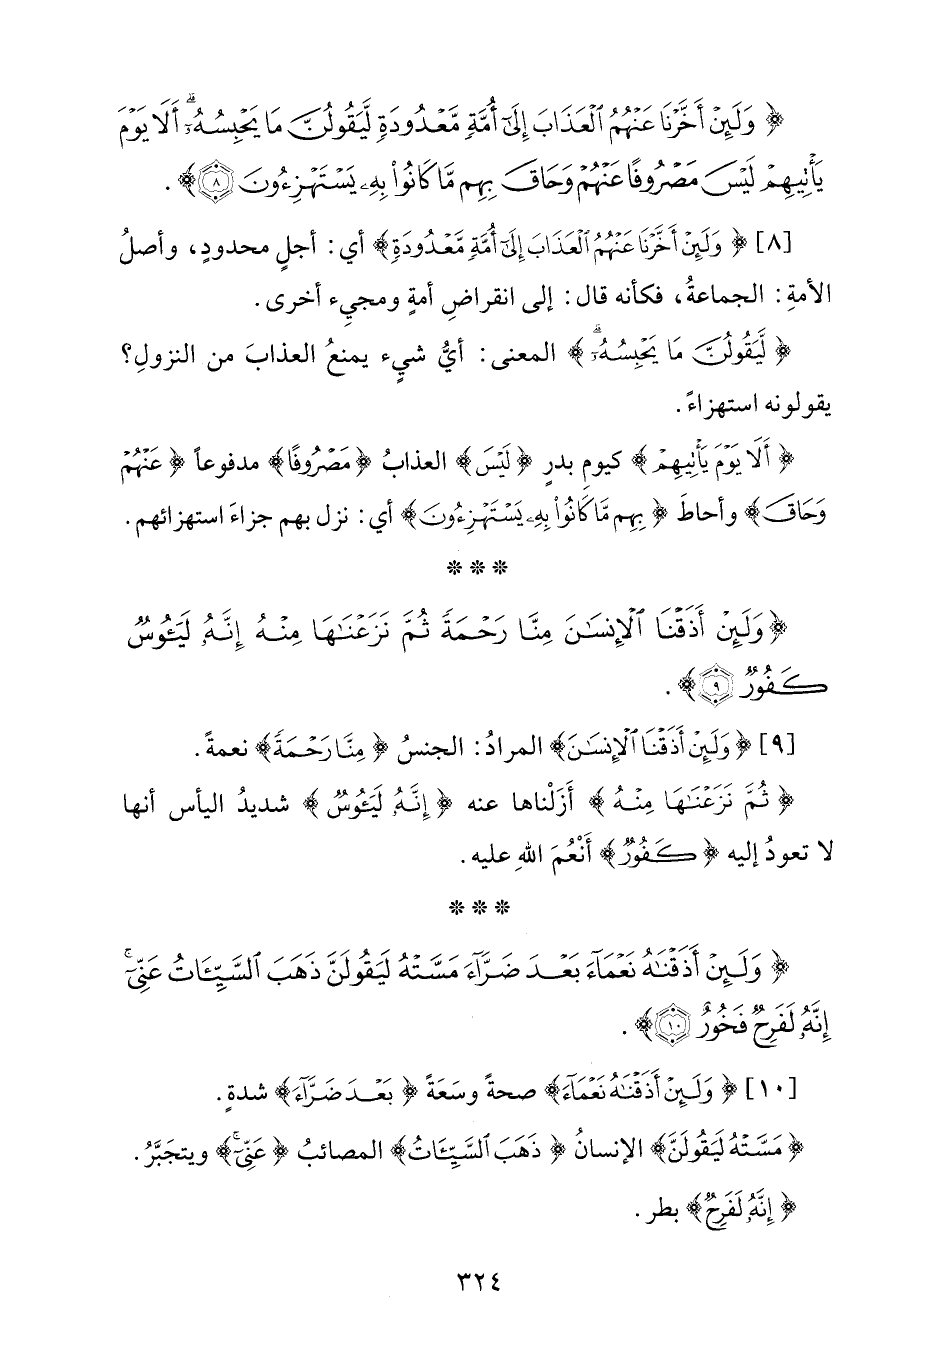 ﴿ وَلَئِنْ أَخَّرْنَا عَنْهُمُ ٱلْعَذَابَ إِلَىٰٓ أُمَّةٍ مَّعْدُودَةٍ لَّيَقُولُنَّ مَا يَحْبِسُهُۥٓ ۗ أَلَا يَوْمَ
يَأْتِيهِمْ لَيْسَ مَصْرُوفًا عَنْهُمْ وَحَاقَ بِهِم مَّا كَانُوا۟ بِهِۦ يَسْتَهْزِءُونَ ۝٨ ﴾ .
[٨] ﴿ وَلَئِنْ أَخَّرْنَا عَنْهُمُ ٱلْعَذَابَ إِلَىٰٓ أُمَّةٍ مَّعْدُودَةٍ ﴾ أي: أجلٍ محدودٍ، وأصلُ
الأمةِ: الجماعةُ، فكأنه قال: إلى انقراضِ أمةٍ ومجيءِ أخرى.
﴿ لَّيَقُولُنَّ مَا يَحْبِسُهُۥٓ ۗ ﴾ المعنى: أيُّ شيءٍ يمنعُ العذابَ من النزولِ؟
يقولونه استهزاءً.
﴿ أَلَا يَوْمَ يَأْتِيهِمْ ﴾ كيومِ بدرٍ ﴿ لَيْسَ ﴾ العذابُ ﴿ مَصْرُوفًا ﴾ مدفوعاً ﴿ عَنْهُمْ
وَحَاقَ ﴾ وأحاطَ ﴿ بِهِم مَّا كَانُوا۟ بِهِۦ يَسْتَهْزِءُونَ ﴾ أي: نزل بهم جزاءَ استهزائهم.
* * *
﴿ وَلَئِنْ أَذَقْنَا ٱلْإِنسَٰنَ مِنَّا رَحْمَةً ثُمَّ نَزَعْنَٰهَا مِنْهُ إِنَّهُۥ لَيَـُٔوسٌ
كَفُورٌ ۝٩ ﴾ .
[٩] ﴿ وَلَئِنْ أَذَقْنَا ٱلْإِنسَٰنَ ﴾ المرادُ: الجنسُ ﴿ مِنَّا رَحْمَةً ﴾ نعمةً.
﴿ ثُمَّ نَزَعْنَٰهَا مِنْهُ ﴾ أَزَلْناها عنه ﴿ إِنَّهُۥ لَيَـُٔوسٌ ﴾ شديدُ اليأس أنها
لا تعودُ إليه ﴿ كَفُورٌ ﴾ أَنْعُمَ اللهِ عليه.
* * *
﴿ وَلَئِنْ أَذَقْنَٰهُ نَعْمَآءَ بَعْدَ ضَرَّآءَ مَسَّتْهُ لَيَقُولَنَّ ذَهَبَ ٱلسَّيِّـَٔاتُ عَنِّىٓ ۚ
إِنَّهُۥ لَفَرِحٌ فَخُورٌ ۝١٠ ﴾ .
[١٠] ﴿ وَلَئِنْ أَذَقْنَٰهُ نَعْمَآءَ ﴾ صحةً وسَعَةً ﴿ بَعْدَ ضَرَّآءَ ﴾ شدةٍ.
﴿ مَسَّتْهُ لَيَقُولَنَّ ﴾ الإنسانُ ﴿ ذَهَبَ ٱلسَّيِّـَٔاتُ ﴾ المصائبُ ﴿ عَنِّىٓ ۚ ﴾ ويتجبَّرُ.
﴿ إِنَّهُۥ لَفَرِحٌ ﴾ بطر.
٣٢٤